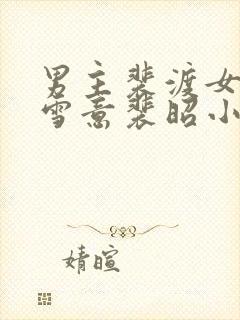 男主裴渡女
雪意裴昭小
婧暄